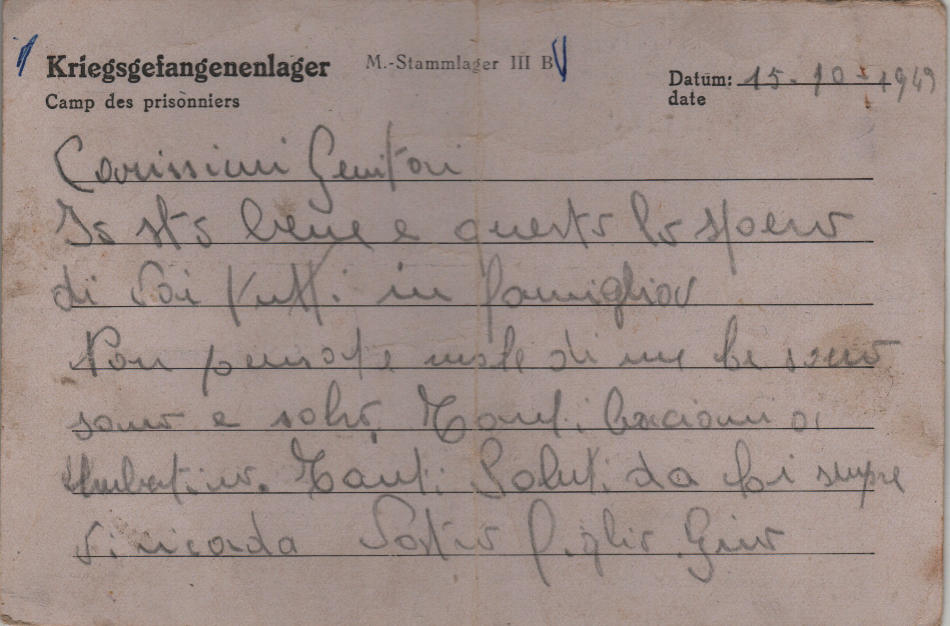 Kriegsgefangenenlager M.-Stammlager III B
Camp des prisonniers
Datum: 15-10-1943
date
Carissimi Genitori
Io sto bene e questo lo spero
di Voi tutti in famiglia
Non pensate male di me
sano e salvo, Tanti bacioni a
Umbertino. Tanti Saluti da chi sempre
vi ricorda Vostro figlio Gino